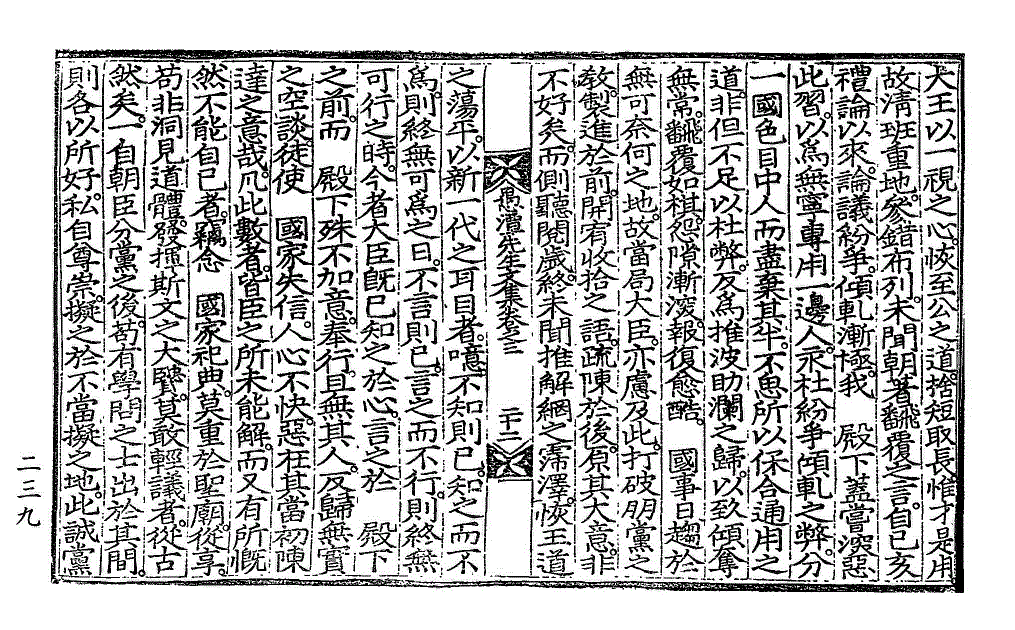 大王以一視之心恢至公之道捨短取長惟才是用
故淸班重地參錯布列未聞朝著飜覆之言自己亥
禮論以來論議紛爭傾軋漸極我 殿下蓋嘗深惡
此習以爲無寧專用一邊人永杜紛爭傾軋之弊分
一國色目中人而盡棄其半不思所以保合通用之
道非但不足以杜弊反爲推波助瀾之歸以致傾奪
無常飜覆如棋怨隙漸深報復愈酷 國事日趨於
無可奈何之地故當局大臣亦慮及此打破朋黨之
敎製進於前開宥收拾之語疏陳於後原其大意非
不好矣而側聽閱歲終未聞推解網之霈澤恢王道
萬潭先生文集卷之三 二十二
之蕩平以新一代之耳目者噫不知則已知之而不
爲則終無可爲之日不言則已言之而不行則終無
可行之時今者大臣旣已知之於心言之於 殿下
之前而 殿下殊不加意奉行且無其人反歸無實
之空談徒使 國家失信人心不快惡在其當初陳
達之意哉凡此數者皆臣之所未能解而又有所慨
然不能自已者竊念 國家祀典莫重於聖廟從享
苟非洞見道體發揮斯文之大賢莫敢輕議者從古
然矣一自朝臣分黨之後苟有學問之士出於其間
則各以所好私自尊崇擬之於不當擬之地此誠黨
二三九